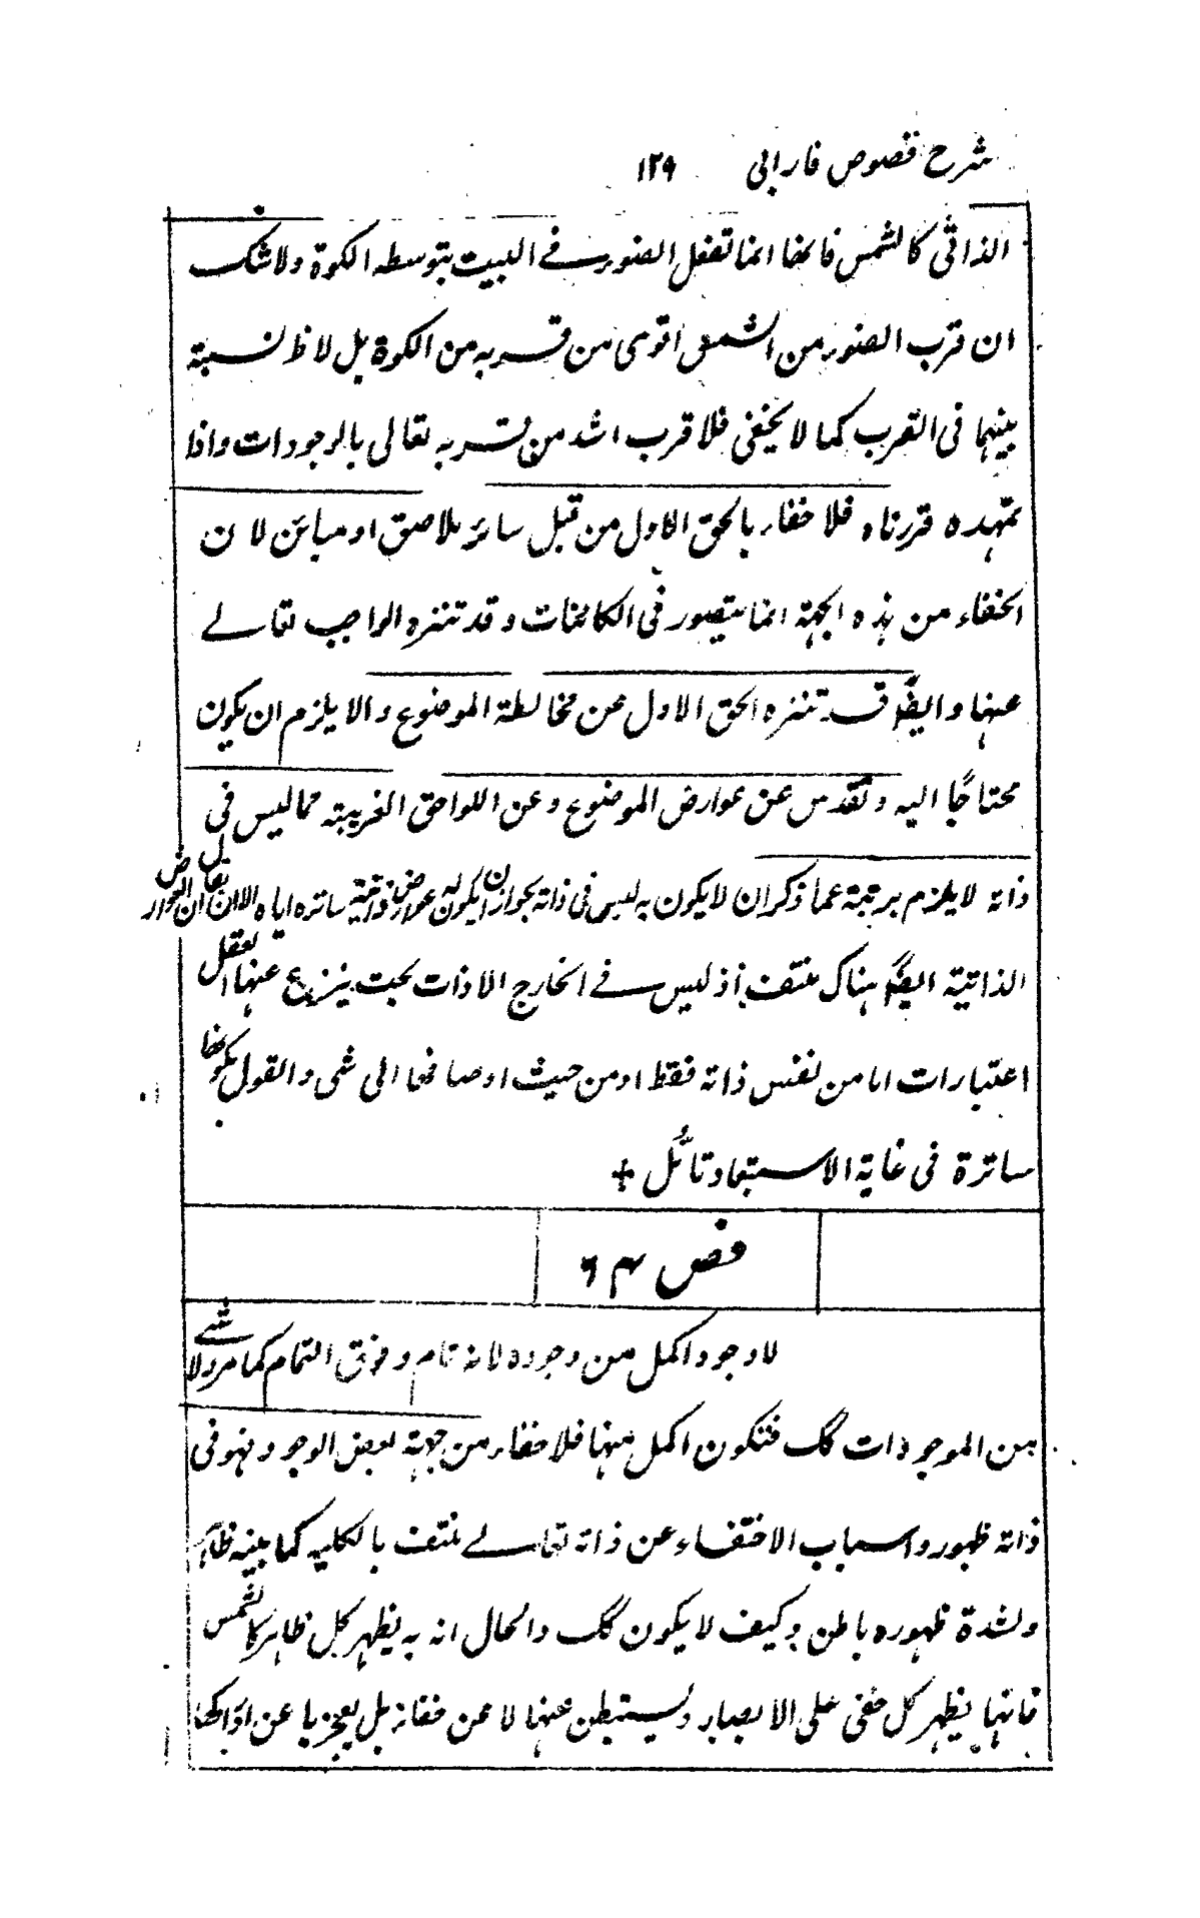 شرح فصوص فارابی ۱۲۹
الذاتی کالشمس فانها انما تفعل الضوء فے البیت بتوسطه الکوة ولاشک
ان قرب الضوء من الشمس اقوی من قربه من الکوة بل لا نسبة
بینهما فی القرب کما لا یخفی فلا قرب اشد من قربه تعالی بالوجودات واذا
تمهد ه قررناه فلا خفاء بالحق الاول من قبل ساتر ملاصق او مبائن لا ن
الخفاء من هذه الجهة انما یتصور فی الکائنات و قد تنزه الواجب تعالے
عنها و ایضا قد تنزه الحق الاول عن مخالطة الموضوع و الا یلزم ان یکون
محتاجا الیه و تقدس عن عوارض الموضوع و عن اللواحق الغریبة مما لیس فی
ذاته لا یلزم بر عما ذکر ان لا یکون به لبس فی ذاته بجواز ان یکون له عوارض ذاتیة ساتره ایاه الا ان یقال ان العوارض
الذاتیة ایضا هناک منتف اذ لیس فے الخارج الا ذات بحت ینزع عنها العقل
اعتبارات اما من نفس ذاته فقط او من حیث اوصافها الی شی و القول بکونها
ساترة فی غایة الاستبعاد تأمل +
فص ۶۴
لا وجود اکمل من وجوده لانه تام و فوق التمام کما مر ولا شے
من الموجودات کک فتکون اکمل منها فلا خفاء من جهة نقص الوجود فهو فی
ذاته ظهور و اسباب الاختفاء عن ذاته تعالے منتف بالکلیه کما بینه ظاهر
ولشدة ظهوره باطن و کیف لا یکون کک والحال انه به یظهر کل ظاهر کالشمس
فانها یظهر کل خفی علی الابصار و یستبطن عنها لا عن خفاء بل لعجزها عن ادراکها